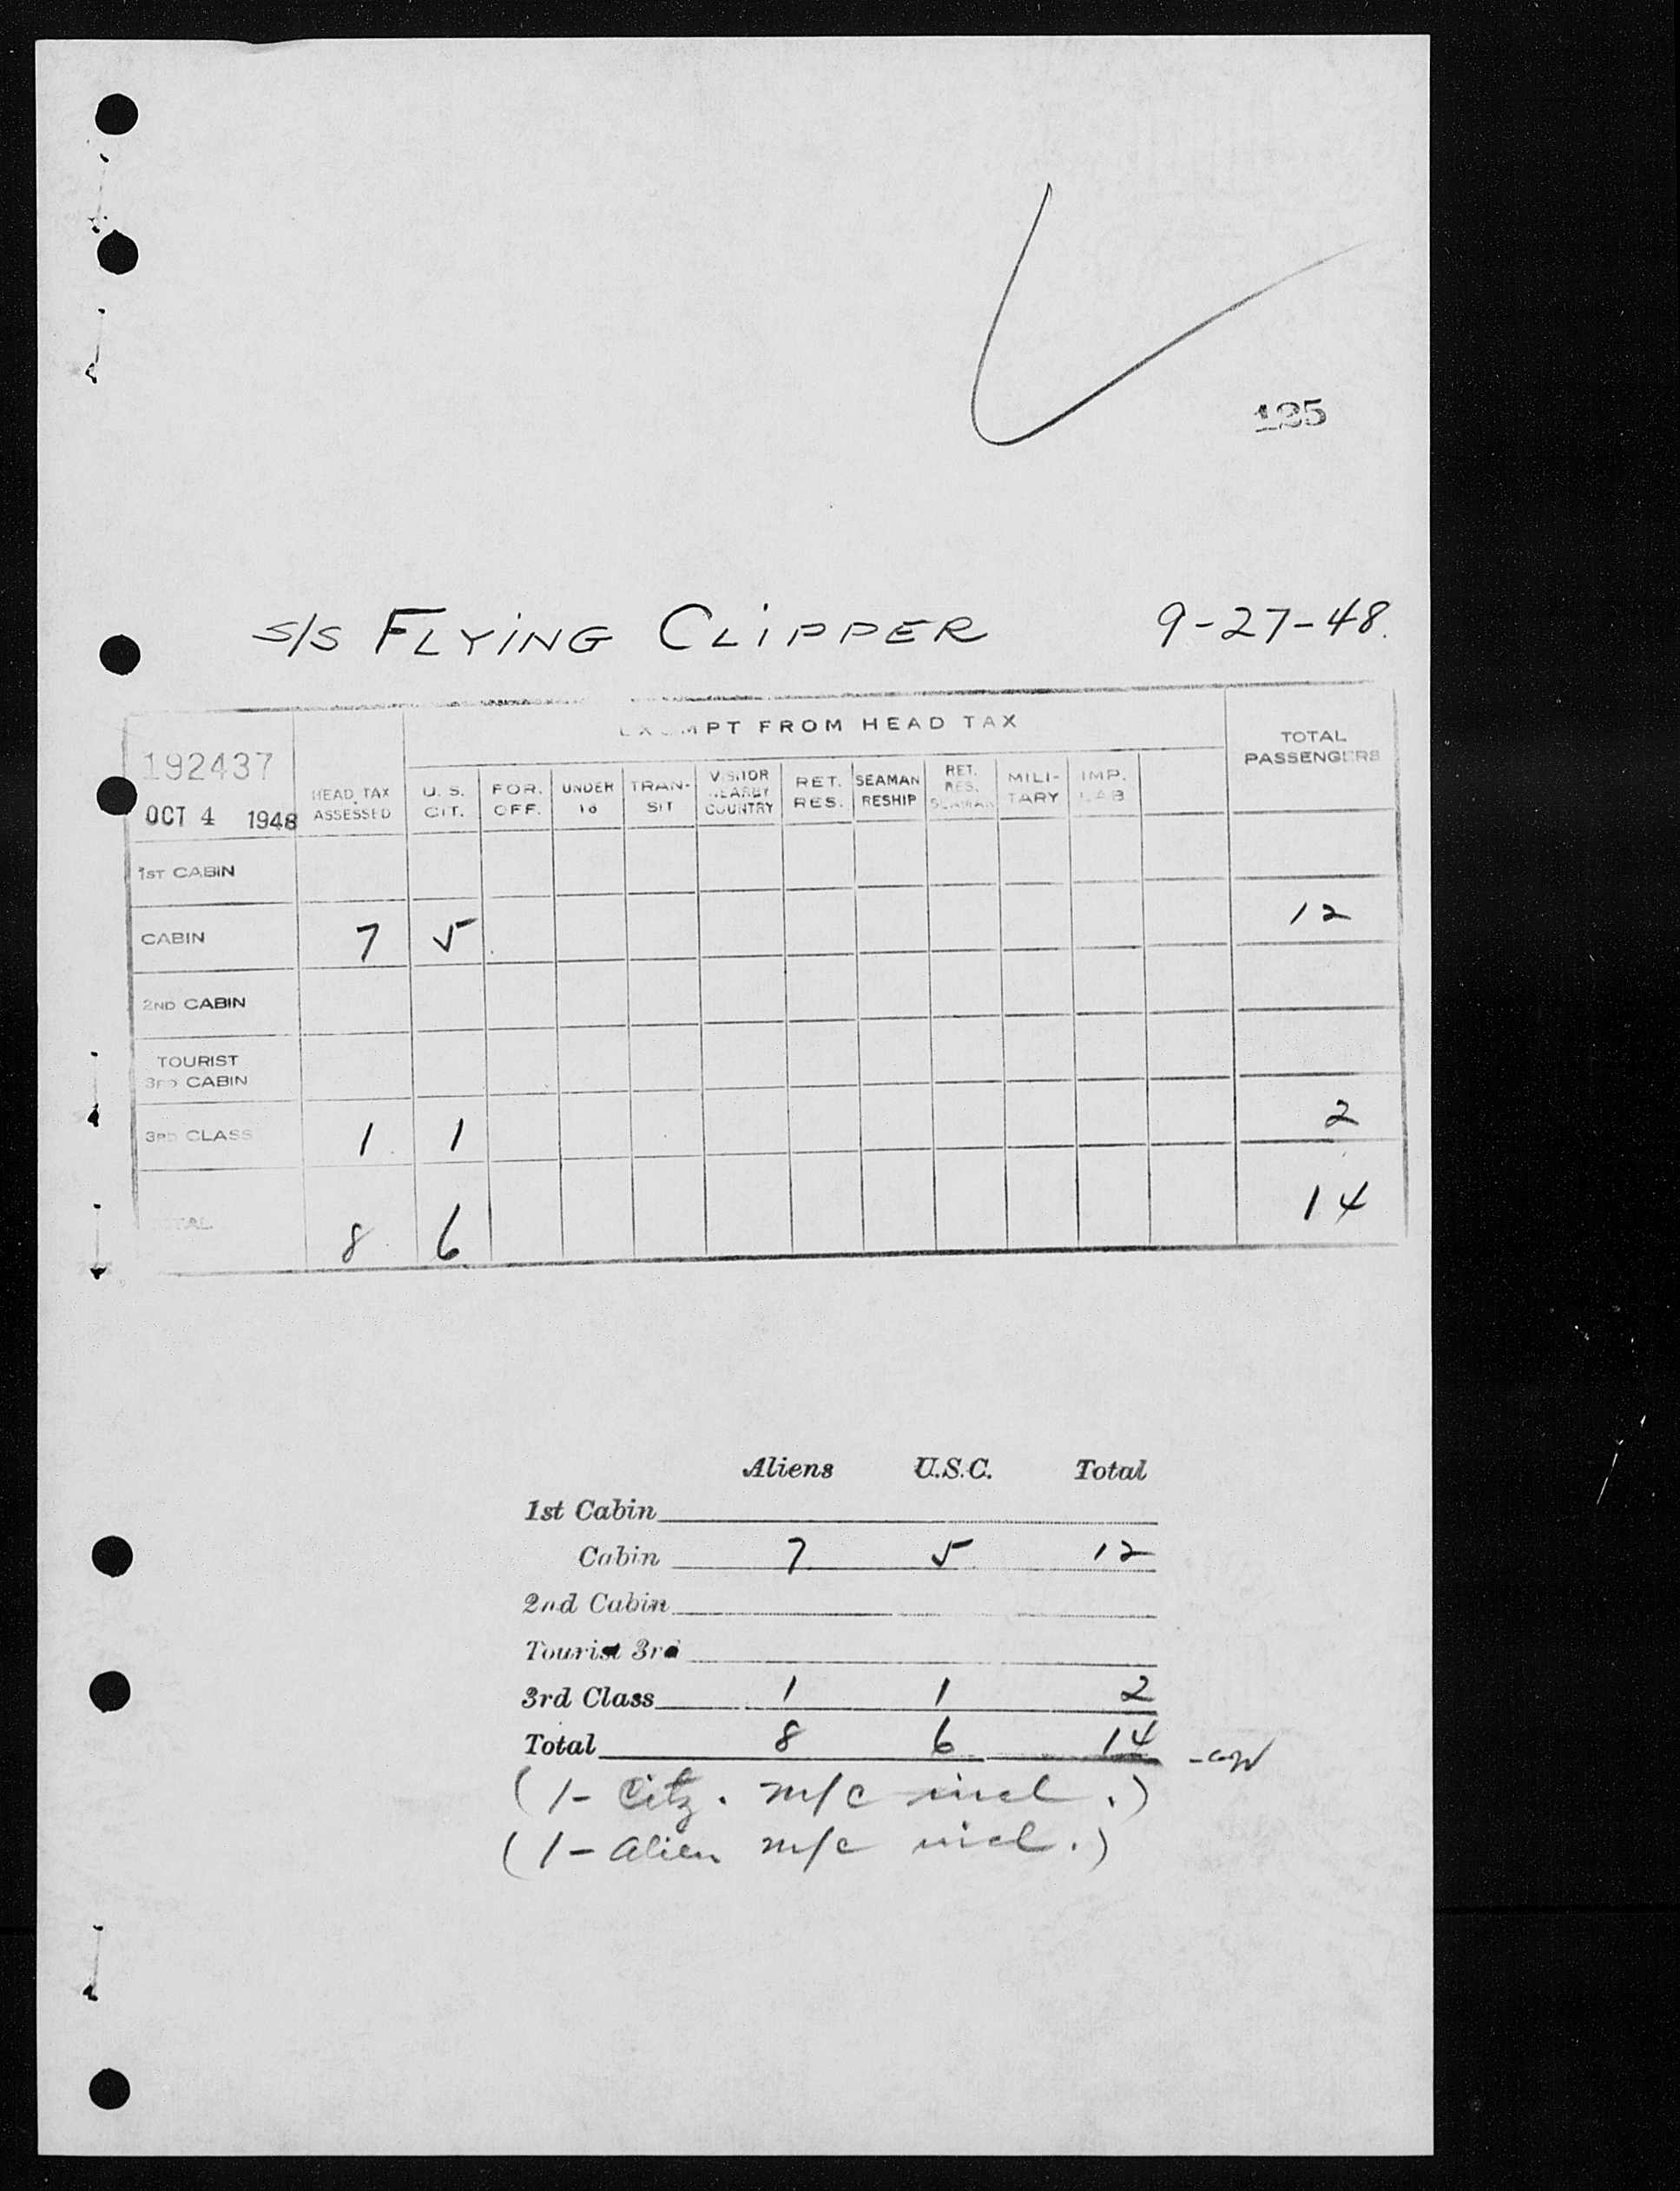 125
S/S FLYING CLIPPER 9-27-48.
EXEMPT FROM HEAD TAX
192437
OCT 4 1948
HEAD TAX ASSESSED U. S. CIT. FOR. OFF. UNDER 16 TRAN-SIT VISITOR NEARBY COUNTRY RET. RES. SEAMAN RESHIP RET. RES. SEAMAN MILI-TARY IMP. LAB TOTAL PASSENGERS
1ST CABIN
CABIN 7 5 12
2ND CABIN
TOURIST
3RD CABIN
3RD CLASS 1 1 2
TOTAL 8 6 14
Aliens U.S.C. Total
1st Cabin
Cabin 7 5 12
2nd Cabin
Tourist 3rd
3rd Class 1 1 2
Total 8 6 14
(1- Citz. m/c incl.)
(1- alien m/c incl.)